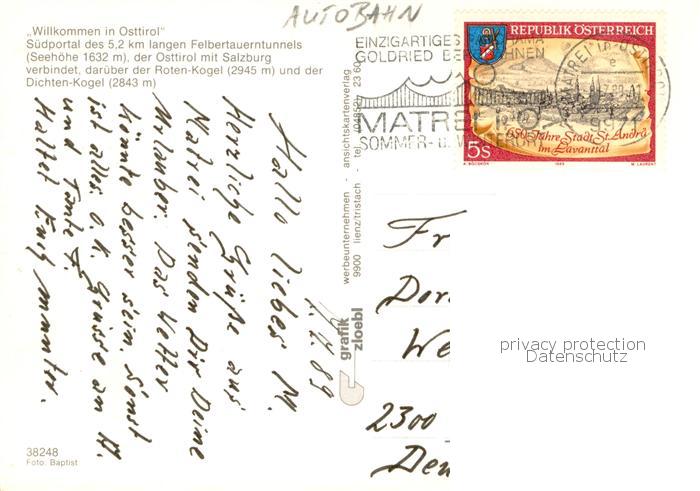 AUTOBAHN
„Willkommen in Osttirol"
Südportal des 5,2 km langen Felbertauerntunnels
(Seehöhe 1632 m), der Osttirol mit Salzburg
verbindet, darüber der Roten-Kogel (2945 m) und der
Dichten-Kogel (2843 m)
1.7.89
Hallo liebes M.
Herzliche Grüße aus
Matrei senden Dir Deine
Urlauber. Das Wetter
könnte besser sein. Sonst
ist alles o.k. Grüsse an H.
und Tante F.
Haltet Euch munter.
38248
Foto: Baptist
werbeunternehmen - ansichtskartenverlag
9900 lienz/tristach - tel. (04852) 23 60
grafik
zloebl
EINZIGARTIGES
GOLDRIED BE
MATREI
SOMMER- u.
REPUBLIK ÖSTERREICH
650 Jahre Stadt St. Andrä
im Lavanttal
5s
1989
M. LAURENT
Fr
Dor
We
2300
Den
privacy protection
Datenschutz